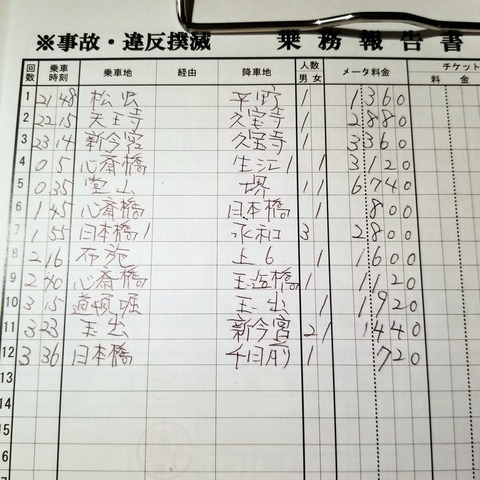 ※事故・違反撲滅 乗務報告書
回数 乗車時刻 乗車地 経由 降車地 人数 男 女 メータ料金 チケット 料金
1 21 48 松虫 平野 1 1360
2 22 15 天王寺 久宝寺 1 2880
3 23 14 新今宮 久宝寺 1 3360
4 0 5 心斎橋 生江 1 1 3120
5 0 35 堂山 堺 1 1 6740
6 1 45 心斎橋 日本橋 1 800
7 1 55 日本橋1 永和 3 2800
8 2 16 布施 上6 1 1600
9 2 40 心斎橋 玉造橋 1 1120
10 3 15 道頓堀 玉出 1 1920
11 3 23 玉出 新今宮 2 1 1440
12 3 36 日本橋 千日前 1 720
13
14
15
16